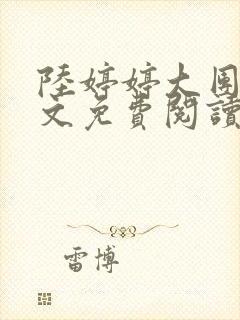 陸婷婷大圍
文免費閱讀
雷博